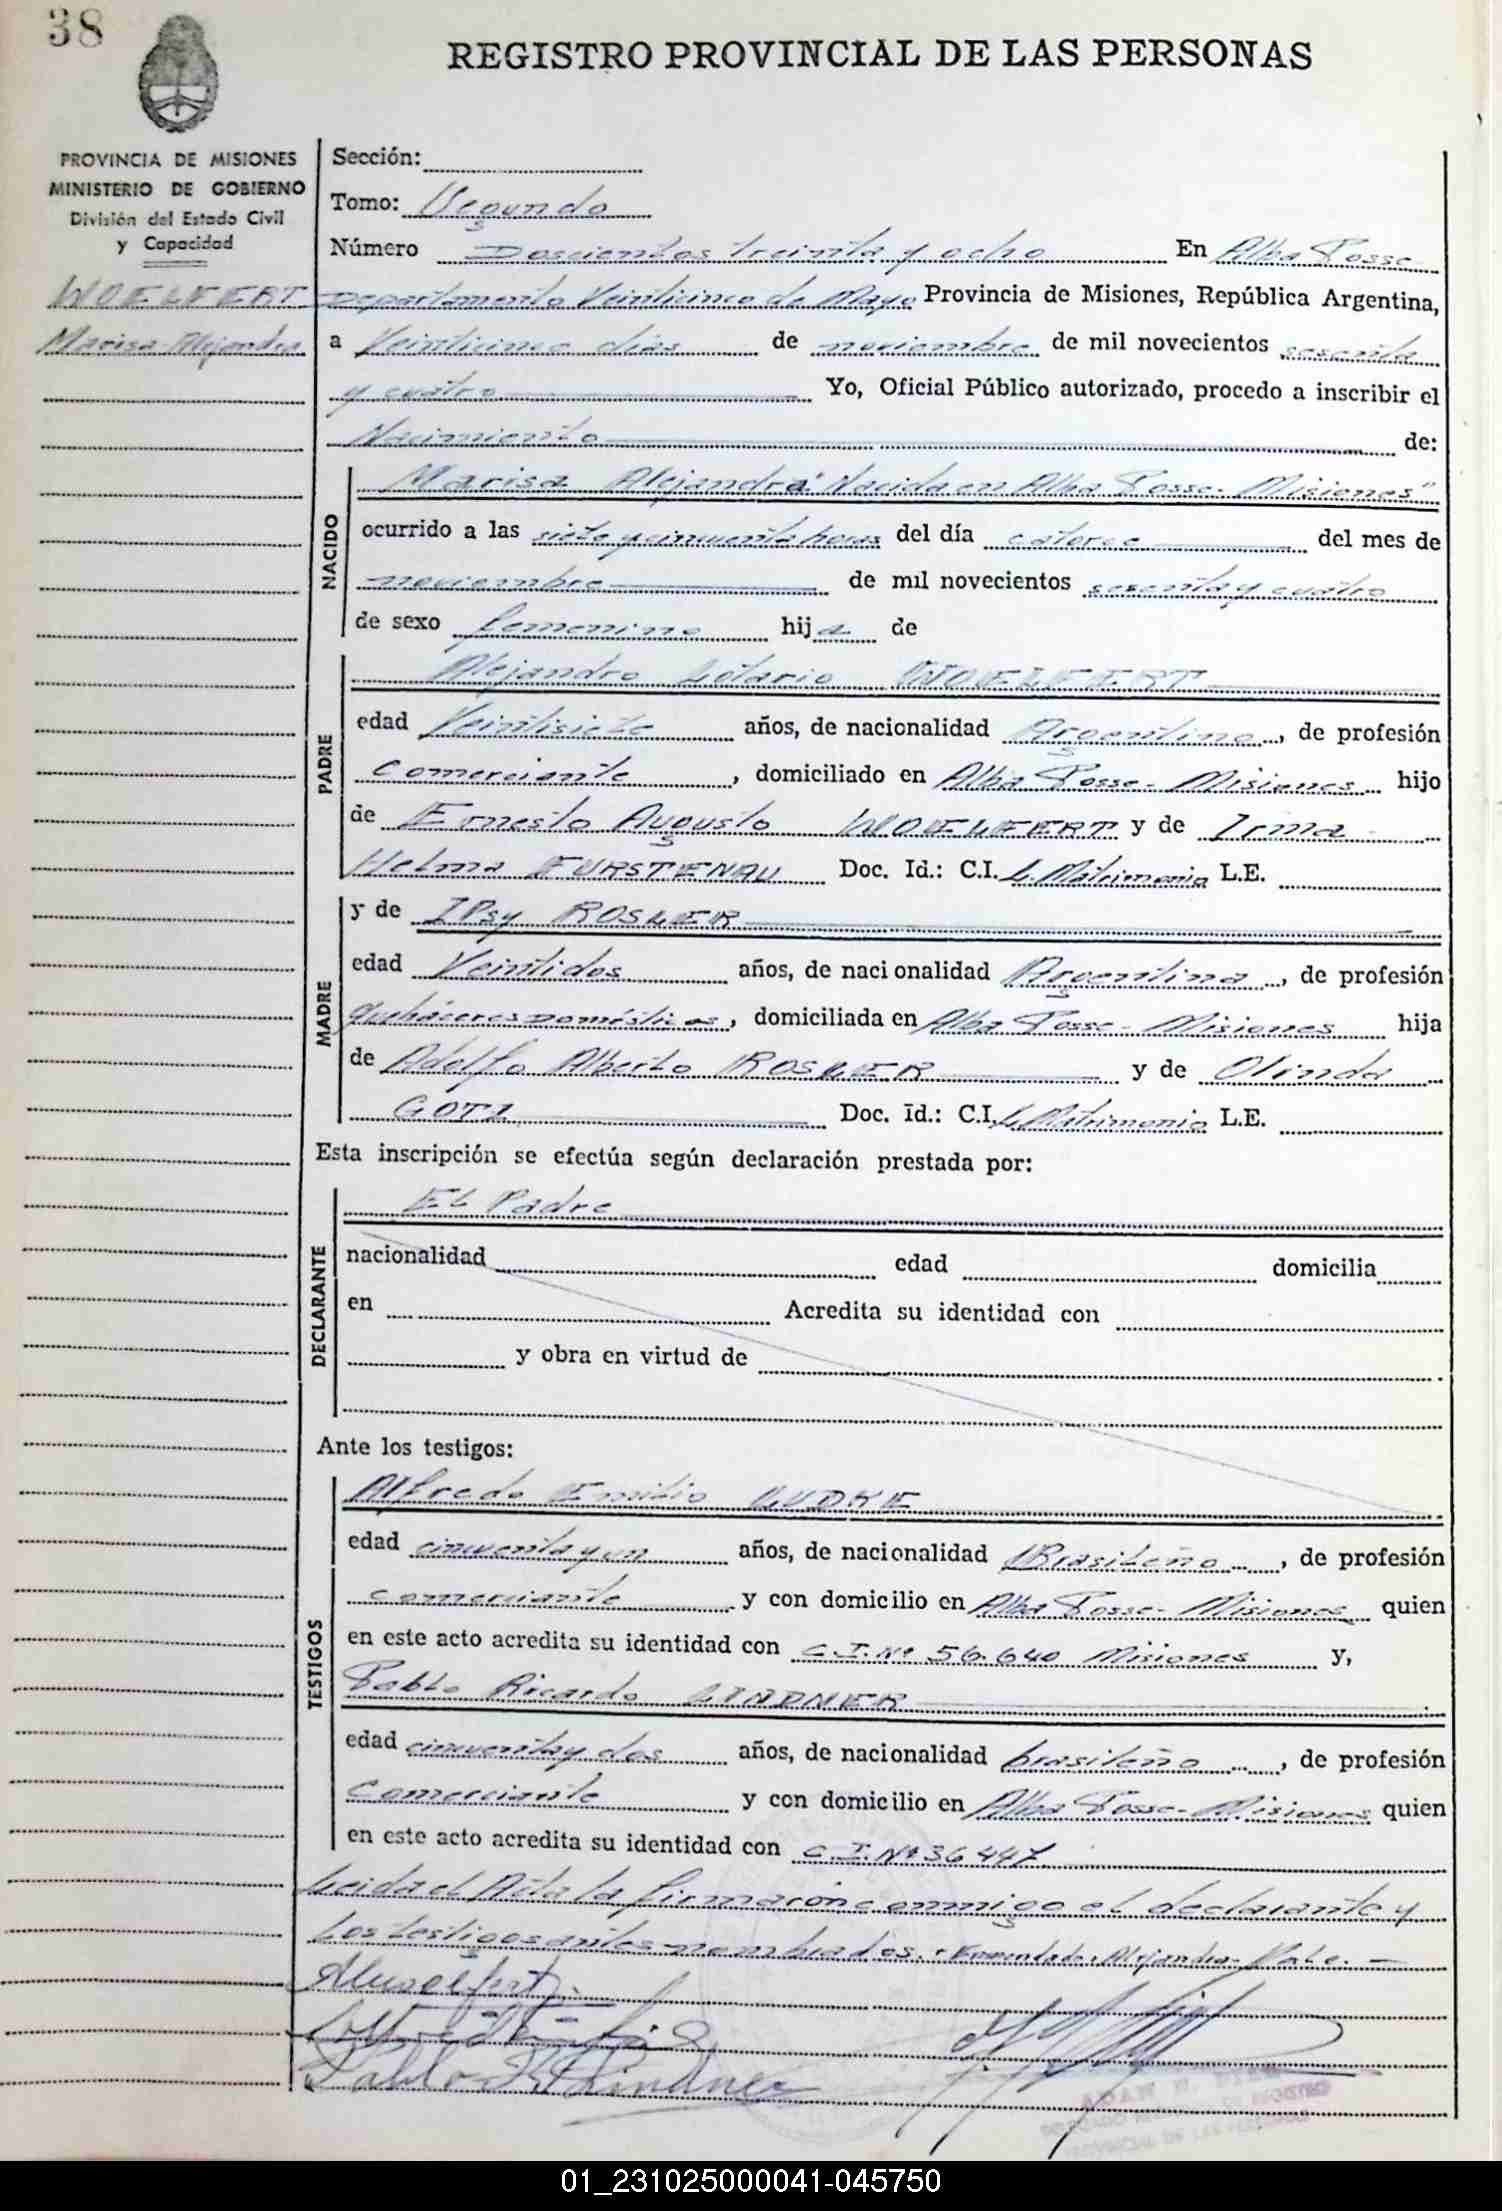 38
REGISTRO PROVINCIAL DE LAS PERSONAS
PROVINCIA DE MISIONES
MINISTERIO DE GOBIERNO
División del Estado Civil
y Capacidad
WOELFERT
Marisa Alejandra
Sección:
Tomo: Segundo
Número Doscientos treinta y ocho En Alba Posse
Departamento Veinticinco de Mayo Provincia de Misiones, República Argentina,
a Veinticinco días de noviembre de mil novecientos sesenta
y cuatro Yo, Oficial Público autorizado, procedo a inscribir el
Nacimiento de:
NACIDO
Marisa Alejandra "Nacida en Alba Posse - Misiones"
ocurrido a las siete y cincuenta horas del día catorce del mes de
noviembre de mil novecientos sesenta y cuatro
de sexo femenino hija de
PADRE
Alejandro Lotario WOELFERT
edad Veintisiete años, de nacionalidad Argentina, de profesión
Comerciante, domiciliado en Alba Posse - Misiones hijo
de Ernesto Augusto WOELFERT y de Irma
Helma FURSTENAU Doc. Id.: C.I. L. Matrimonio L.E.
MADRE
y de IPsy ROSLER
edad Veintidos años, de nacionalidad Argentina, de profesión
quehaceres domésticos, domiciliada en Alba Posse - Misiones hija
de Adolfo Alberto ROSLER y de Olinda
GOTZ Doc. Id.: C.I. L. Matrimonio L.E.
Esta inscripción se efectúa según declaración prestada por:
DECLARANTE
El Padre
nacionalidad edad domicilia
en Acredita su identidad con
y obra en virtud de
Ante los testigos:
TESTIGOS
Alfredo Emilio LUDKE
edad cincuenta y un años, de nacionalidad Brasileño, de profesión
comerciante y con domicilio en Alba Posse - Misiones quien
en este acto acredita su identidad con C.I. Nº 56.640 Misiones y,
Pablo Ricardo LINDNER
edad cincuenta y dos años, de nacionalidad brasileño, de profesión
Comerciante y con domicilio en Alba Posse - Misiones quien
en este acto acredita su identidad con C.I. Nº 36447
Leida el Acta la firmaron conmigo el declarante y
los testigos antes nombrados. Enmendado: Alejandra - Vale. -
Pablo R Lindner
01_231025000041-045750